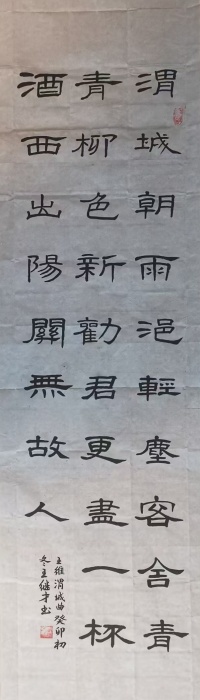 渭城朝雨浥輕塵客舍青
青柳色新勸君更盡一杯
酒西出陽關無故人
王維渭城曲癸卯初
冬王繼才书